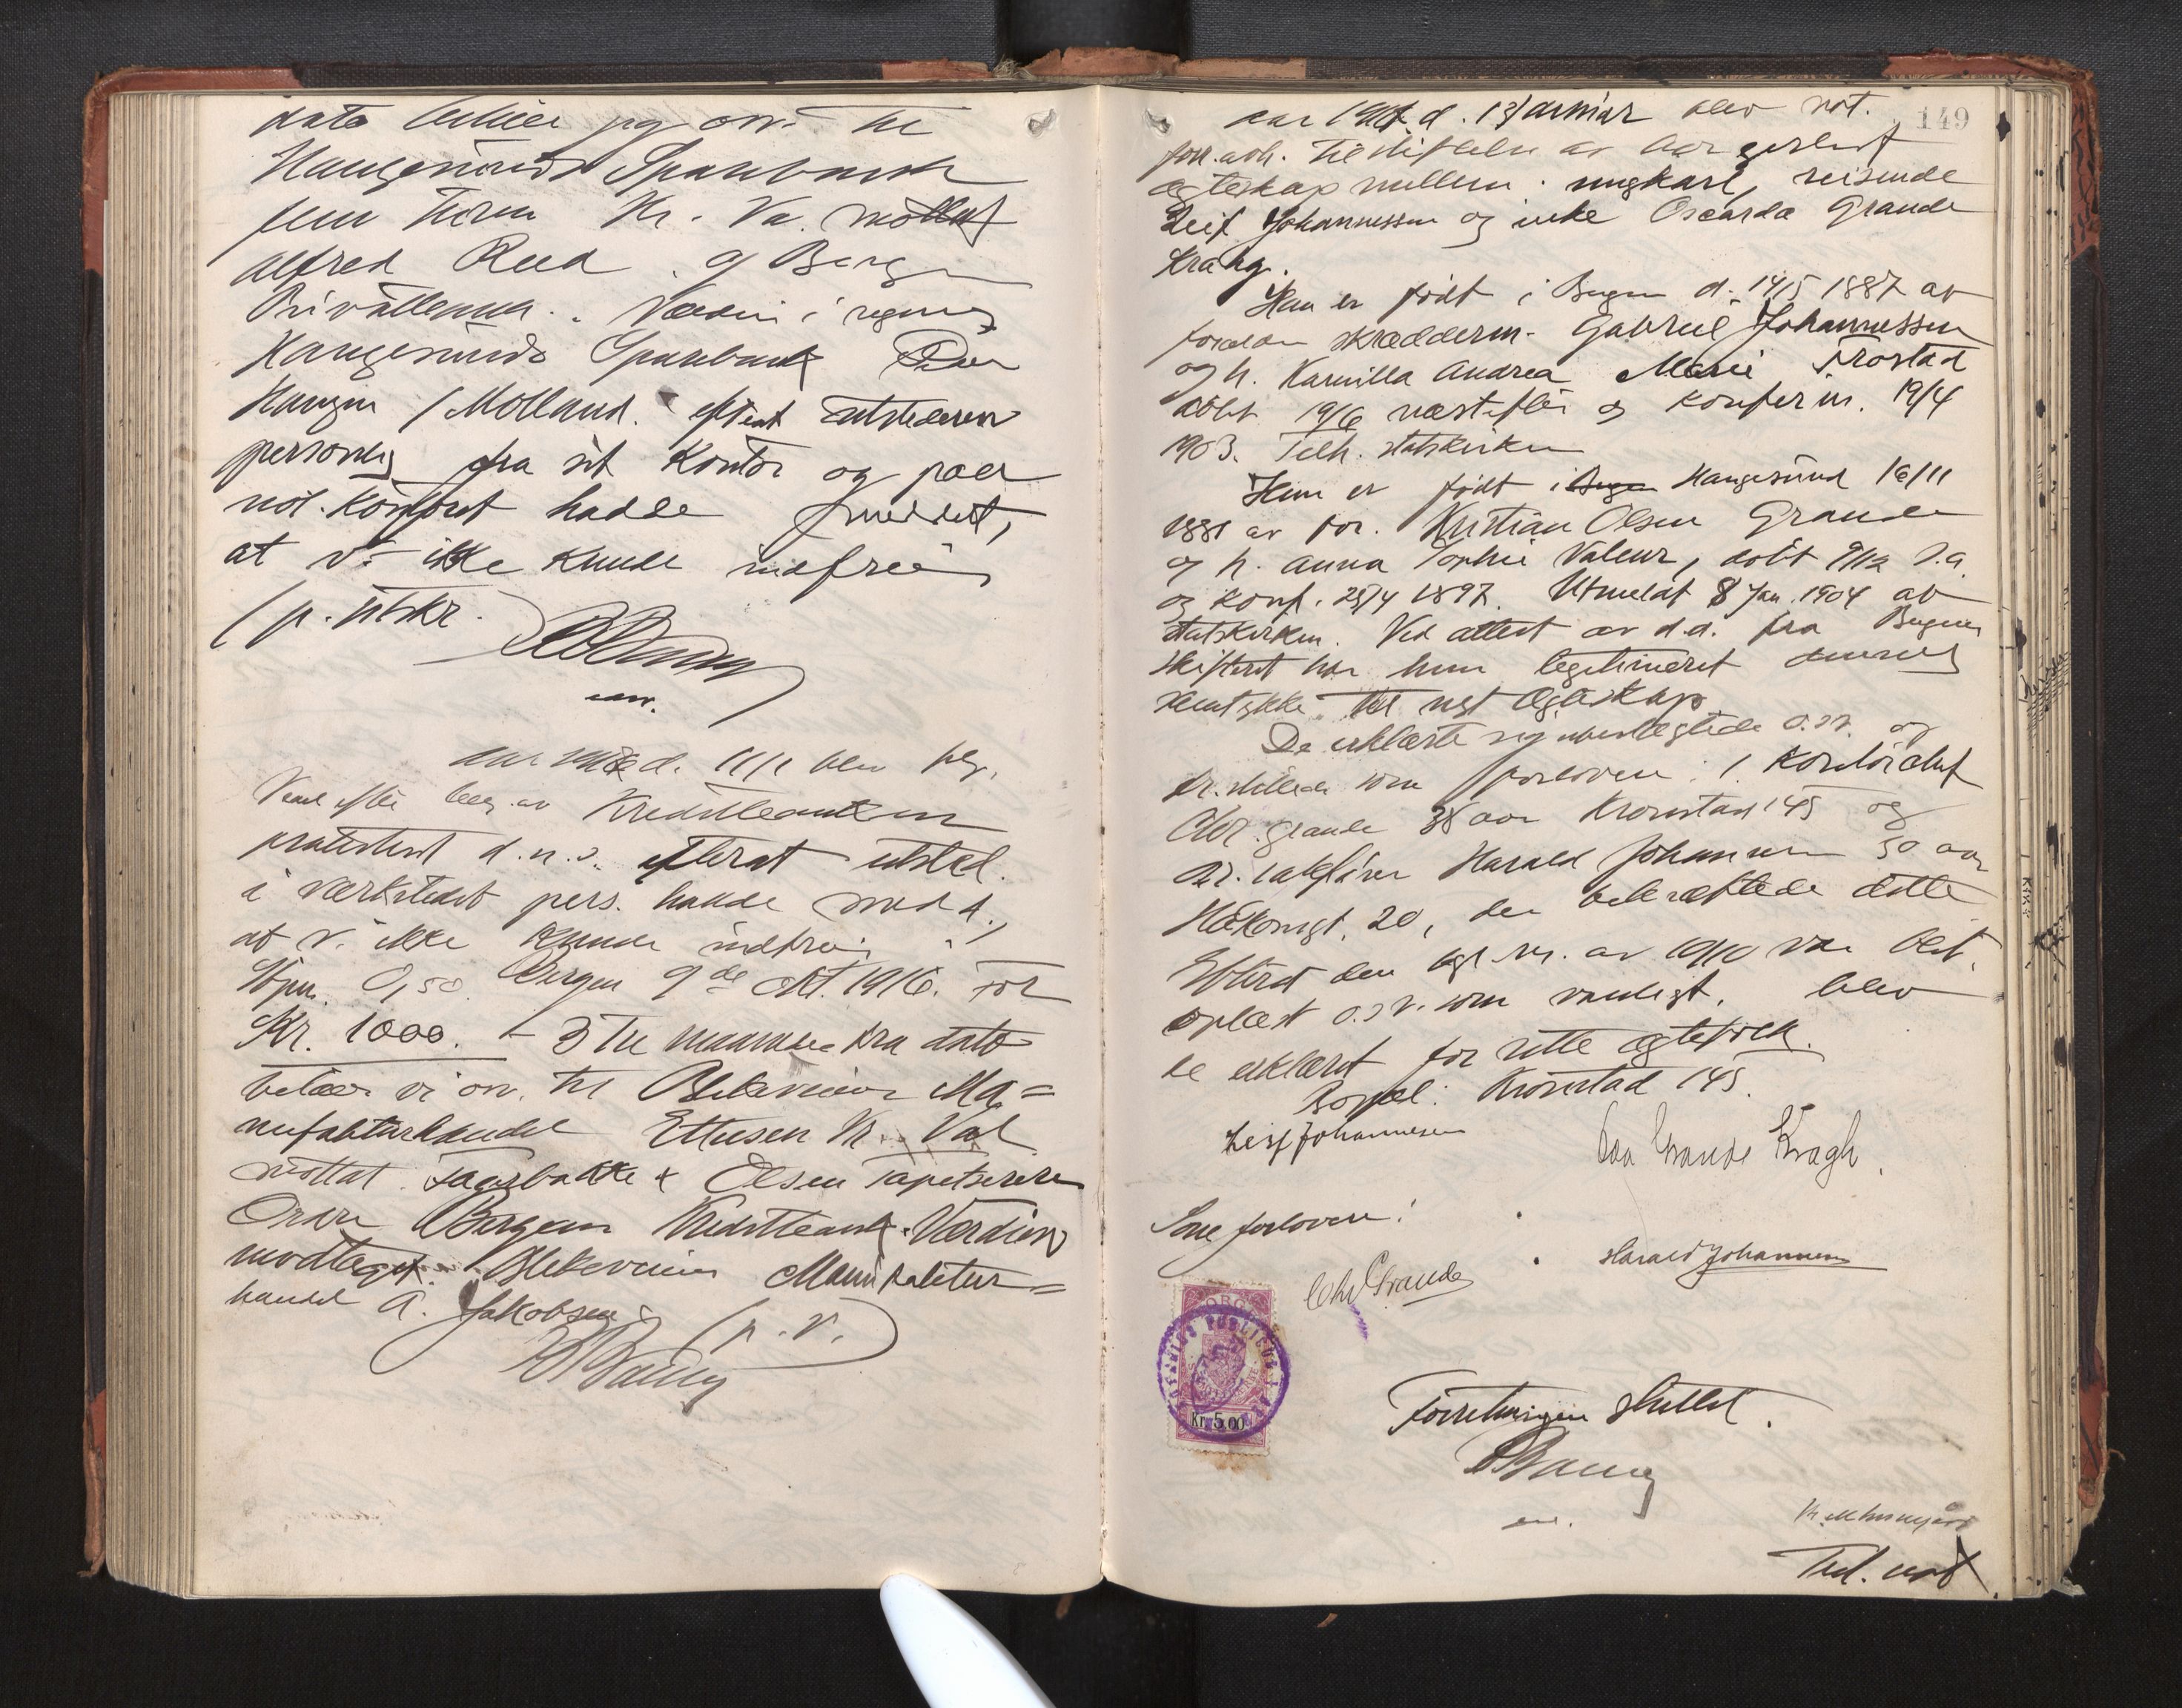 dato betaler jeg
Haugesunds Sparebank
fem Tusen Kr. Va. mottat
Alfred Reed. a/ Bergens
Privatbank. Værdien i regning
Haugesunds Sparebank
Haugen / Molland. efterat utstederen
personlig fra sit Kontor og paa
not. Kontoret hadde meddelt,
at v. ikke kunde indfries
(p. utskr.
aar 1917 d. 11/1 blev flg.
Veksel efter beg. av Kreditbanken
protestert d.n.s. efterat utsted.
i værkstedet pers. hadde medd.,
at v. ikke kunde indfries
Stpm. 0,50. Bergen 9de Okt. 1916. For
Kr. 1000. – 3 Tre maaneder fra dato
betaler vi til Blekeveiens Ma=
nufakturhandel Ettusen Kr. Val
mottat. Fagerbakke & Olsen Tapetserere
Ordre Bergens Kreditbank. Værdien
modtaget. Blekeveiens Manufaktur=
handel A. Jakobsen (p. v.)
149
aar 1917 d. 13 januar blev not.
forr. avh. til stiftelse av borgerligt
egteskap mellem ungkarl, reisende
Leif Johannessen og enke Oscarda Grande
Kragh.
Han er født i Bergen d. 14/5 1887 av
forældre skræderm. Gabriel Johannessen
og h. Kamilla Andrea Marie Frostad
døbt 19/6 næstefter og konferm. 19/4
1903. Tilh. statskirken
Hun er født i Bergen Haugesund 16/11
1881 av for. Kristian Olsen Grande
og h. Anna Sophie Valeur, døbt 9/12 s.a.
og konf. 25/4 1897. Utmeldt 8 Jan. 1904 av
statskirken. Ved attest av d.d. fra Bergens
skifteret har hun legitimeret dennes
samtykke til nyt Egteskap
De erklærte sig ubeslegtede o.s.v. og
fr.stillede som forlovere: 1. Kontorchef
Chr. Grande 38 aar Kronstad 145 og
Harald Johannessen 30 aar
Håkonsgt. 20, der bekræftede dette
Efterat den kgl. res. av 10/10 var
oplæst o.s.v. som vanligt, blev
de erklæret for rette egtefolk.
Bopæl: Kronstad 145.
Leif Johannessen
Osa Grande Kragh.
Som forlovere:
Chr Grande
Harald Johannessen
NOTARIUS PUBLICUS I BERGEN
NORGE
Kr. 5.00
Forretningen sluttet.